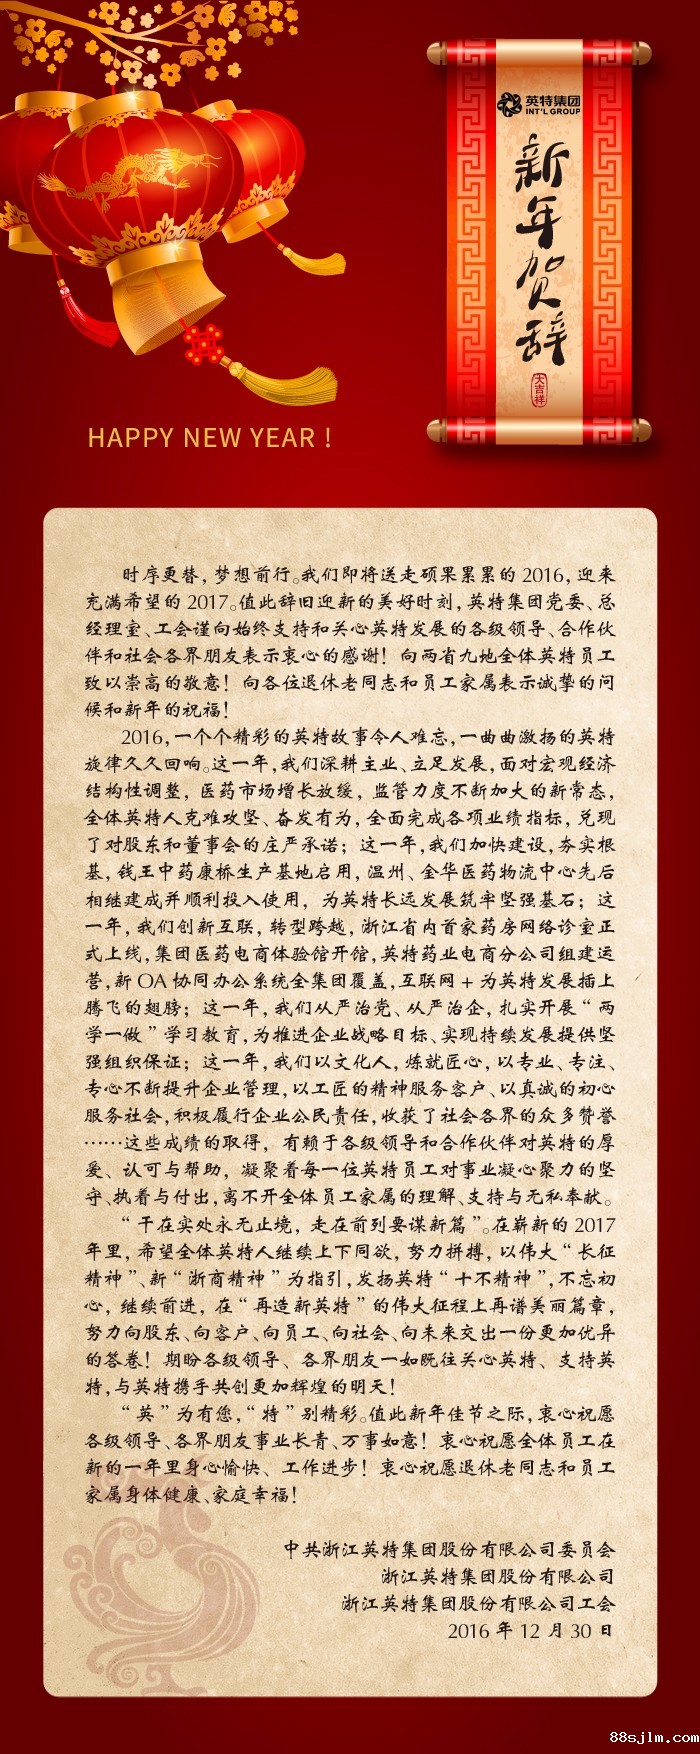 英特集团
INT'L GROUP
新年贺辞
大吉祥
HAPPY NEW YEAR !
时序更替，梦想前行。我们即将送走硕果累累的 2016，迎来
充满希望的 2017。值此辞旧迎新的美好时刻，英特集团党委、总
经理室、工会谨向始终支持和关心英特发展的各级领导、合作伙
伴和社会各界朋友表示衷心的感谢！向两省九地全体英特员工
致以崇高的敬意！向各位退休老同志和员工家属表示诚挚的问
候和新年的祝福！
2016，一个个精彩的英特故事令人难忘，一曲曲激扬的英特
旋律久久回响。这一年，我们深耕主业、立足发展，面对宏观经济
结构性调整，医药市场增长放缓，监管力度不断加大的新常态，
全体英特人克难攻坚、奋发有为，全面完成各项业绩指标，兑现
了对股东和董事会的庄严承诺；这一年，我们加快建设，夯实根
基，钱王中药康桥生产基地启用，温州、金华医药物流中心先后
相继建成并顺利投入使用，为英特长远发展筑牢坚强基石；这
一年，我们创新互联，转型跨越，浙江省内首家药房网络诊室正
式上线，集团医药电商体验馆开馆，英特药业电商分公司组建运
营，新 OA 协同办公系统全集团覆盖，互联网 + 为英特发展插上
腾飞的翅膀；这一年，我们从严治党、从严治企，扎实开展“两
学一做”学习教育，为推进企业战略目标、实现持续发展提供坚
强组织保证；这一年，我们以文化人，炼就匠心，以专业、专注、
专心不断提升企业管理，以工匠的精神服务客户、以真诚的初心
服务社会，积极履行企业公民责任，收获了社会各界的众多赞誉
……这些成绩的取得，有赖于各级领导和合作伙伴对英特的厚
爱、认可与帮助，凝聚着每一位英特员工对事业凝心聚力的坚
守、执着与付出，离不开全体员工家属的理解、支持与无私奉献。
“干在实处永无止境，走在前列要谋新篇”。在崭新的 2017
年里，希望全体英特人继续上下同欲，努力拼搏，以伟大“长征
精神”、新“浙商精神”为指引，发扬英特“十不精神”，不忘初
心，继续前进，在“再造新英特”的伟大征程上再谱美丽篇章，
努力向股东、向客户、向员工、向社会、向未来交出一份更加优异
的答卷！期盼各级领导、各界朋友一如既往关心英特、支持英
特，与英特携手共创更加辉煌的明天！
“英”为有您，“特”别精彩。值此新年佳节之际，衷心祝愿
各级领导、各界朋友事业长青、万事如意！衷心祝愿全体员工在
新的一年里身心愉快、工作进步！衷心祝愿退休老同志和员工
家属身体健康、家庭幸福！
中共浙江英特集团股份有限公司委员会
浙江英特集团股份有限公司
浙江英特集团股份有限公司工会
2016 年 12 月 30 日
88sjlm.com